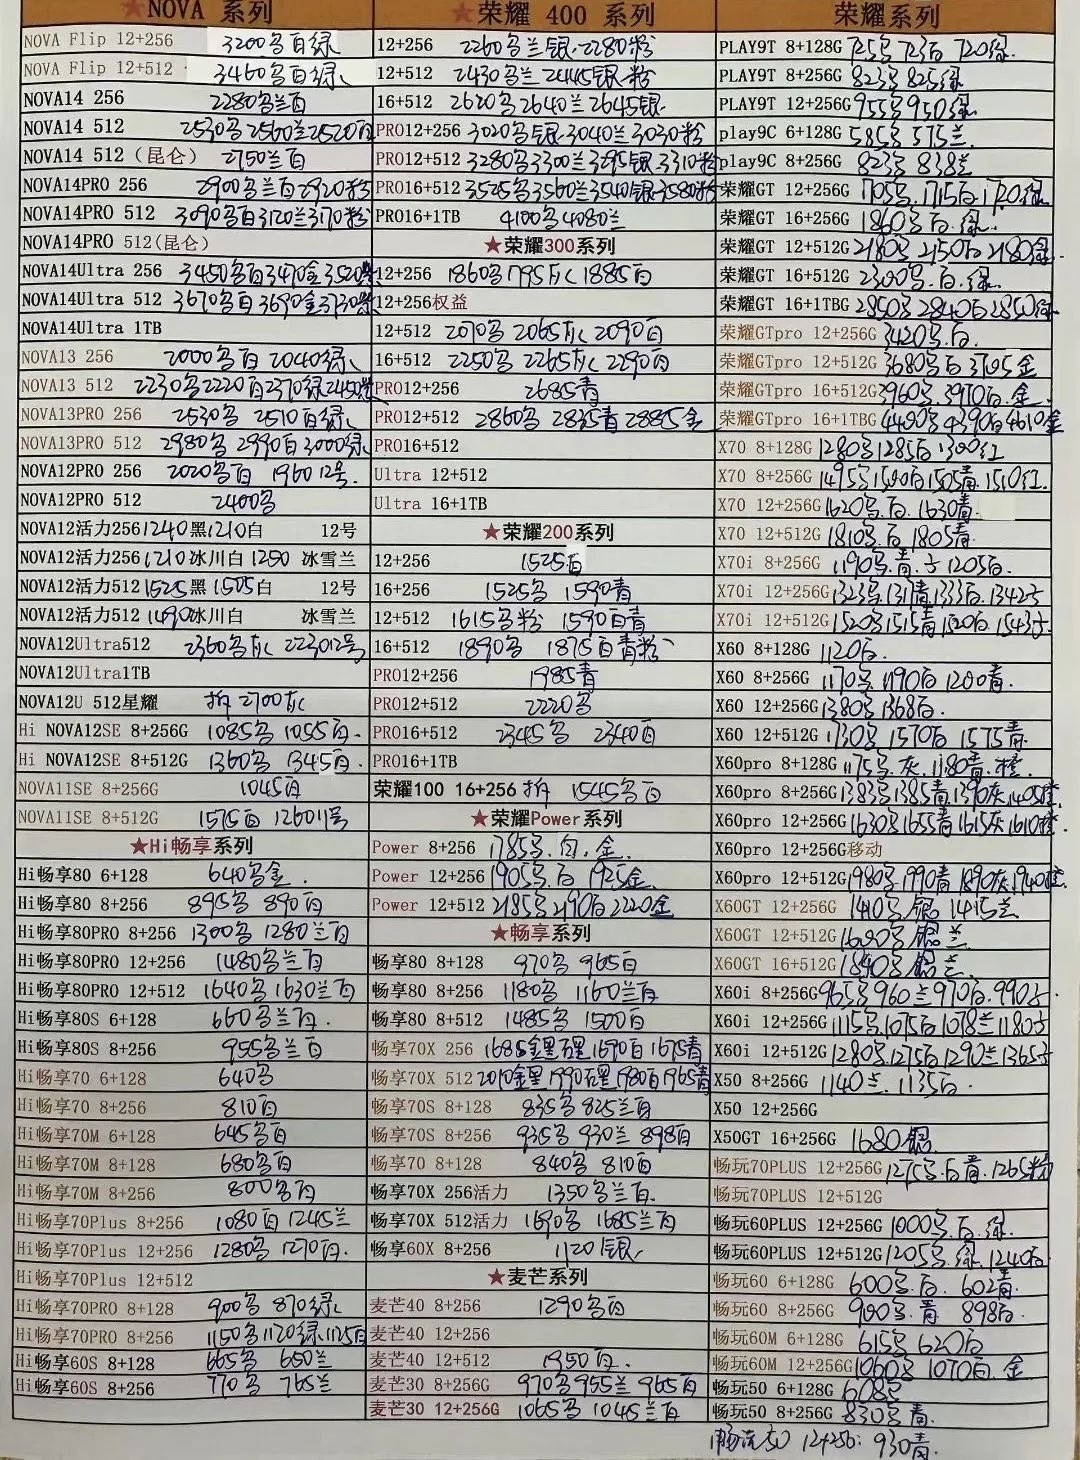 ★NOVA 系列
NOVA Flip 12+256 3200各百绿
NOVA Flip 12+512 3460各百绿
NOVA14 256 2280各兰百
NOVA14 512 2530各2560兰2520百
NOVA14 512（昆仑） 2750兰百
NOVA14PRO 256 2900各兰百2920粉
NOVA14PRO 512 3090各百3120兰3170粉
NOVA14PRO 512(昆仑)
NOVA14Ultra 256 3450各百3470金3520
NOVA14Ultra 512 3670各百3690金3730
NOVA14Ultra 1TB
NOVA13 256 2000各百 2040绿
NOVA13 512 2230各2220百2370绿2450
NOVA13PRO 256 2530各 2510百绿
NOVA13PRO 512 2980各 2990百3000绿
NOVA12PRO 256 2020各百 1960 12号
NOVA12PRO 512 2400各
NOVA12活力256 1240黑1210白 12号
NOVA12活力256 1210冰川白 1250 冰雪兰
NOVA12活力512 1525黑 1505白 12号
NOVA12活力512 1490冰川白 冰雪兰
NOVA12Ultra512 2360各灰 2230 12号
NOVA12Ultra1TB
NOVA12U 512星耀 拆 2700灰
Hi NOVA12SE 8+256G 1085各 1055百.
Hi NOVA12SE 8+512G 1360各 1345百.
NOVA11SE 8+256G 1045百
NOVA11SE 8+512G 1575百 1260 11号
★Hi畅享系列
Hi畅享80 6+128 640各金.
Hi畅享80 8+256 895各 890百
Hi畅享80PRO 8+256 1300各 1280兰百
Hi畅享80PRO 12+256 1480各兰百
Hi畅享80PRO 12+512 1640各 1630兰百
Hi畅享80S 6+128 660各兰百.
Hi畅享80S 8+256 955各兰百
Hi畅享70 6+128 640各
Hi畅享70 8+256 810百
Hi畅享70M 6+128 645各百
Hi畅享70M 8+128 680各百
Hi畅享70M 8+256 800各百
Hi畅享70Plus 8+256 1080百 1245兰
Hi畅享70Plus 12+256 1280各 1270百.
Hi畅享70Plus 12+512
Hi畅享70PRO 8+128 900各 870绿
Hi畅享70PRO 8+256 1150各1170绿1125百
Hi畅享60S 8+128 665各 650兰
Hi畅享60S 8+256 770各 765兰
★荣耀 400 系列
12+256 2260各兰银.2280粉
12+512 2430各兰 2445银粉
16+512 2620各2640兰2645银
PRO12+256 3020各银.3040兰3030粉
PRO12+512 3280各3300兰3295银3310粉
PRO16+512 3525各3560兰3540银3580粉
PRO16+1TB 4100各4080兰
★荣耀300系列
12+256 1860各1795灰1885百
12+256权益
12+512 2070各 2065灰 2090百
16+512 2250各 2265灰 2290百
PRO12+256 2685青
PRO12+512 2860各 2835青 2885金
PRO16+512
Ultra 12+512
Ultra 16+1TB
★荣耀200系列
12+256 1525百
16+256 1525各 1590青
12+512 1615各粉 1590百青
16+512 1890各 1875百青粉
PRO12+256 1985青
PRO12+512 2220各
PRO16+512 2345各 2340百
PRO16+1TB
荣耀100 16+256 拆 1545各百
★荣耀Power系列
Power 8+256 1785各.百.金.
Power 12+256 1905各.百 1925金
Power 12+512 2185各2190百2220金
★畅享系列
畅享80 8+128 970各 965百
畅享80 8+256 1180各 1160兰百
畅享80 8+512 1485各 1500百
畅享70X 256 1685金黑 1690百 1675青
畅享70X 512 2010金黑1990 1980百1965青
畅享70S 8+128 835各 825兰百
畅享70S 8+256 935各 930兰 898百
畅享70 8+128 840各 810百
畅享70X 256活力 1350各兰百.
畅享70X 512活力 1690各 1685兰百
畅享60X 8+256 1120银
★麦芒系列
麦芒40 8+256 1290各百
麦芒40 12+256
麦芒40 12+512 1950百.
麦芒30 8+256G 970各955兰 965百
麦芒30 12+256G 1065各 1045兰百
荣耀系列
PLAY9T 8+128G 725各723百720绿.
PLAY9T 8+256G 823各825绿
PLAY9T 12+256G 955各950绿
play9C 6+128G 585各575兰.
play9C 8+256G 823各 838兰
荣耀GT 12+256G 1705各.1715百1720绿
荣耀GT 16+256G 1860各百.绿.
荣耀GT 12+512G 2180各 2150百2180绿.
荣耀GT 16+512G 2300各.百.绿.
荣耀GT 16+1TBG 2850各2840百2850绿
荣耀GTpro 12+256G 3420各.百.
荣耀GTpro 12+512G 3680各百3705金
荣耀GTpro 16+512G 3960各.3970百.金
荣耀GTpro 16+1TBG 4400各4390百4610金
X70 8+128G 1280各1285百1300红
X70 8+256G 1495各1500百1505青.1510红.
X70 12+256G 1620各.百.1630青.
X70 12+512G 1810各.百 1805青.
X70i 8+256G 1190各.青.子1205百.
X70i 12+256G 1323各.1317青1333百.1342子
X70i 12+512G 1520各1515青1520百1543子
X60 8+128G 1120百.
X60 8+256G 1170各1190百1200青.
X60 12+256G 1380各1368百.
X60 12+512G 1730各1570百 1575青
X60pro 8+128G 1175各.灰.1180青.橙.
X60pro 8+256G 1383各1385青1390灰1405橙
X60pro 12+256G 1630各1655青1615灰1610橙
X60pro 12+256G移动
X60pro 12+512G 1980各1990青1890灰1940橙
X60GT 12+256G 1410各银 1415兰
X60GT 12+512G 1600各银兰
X60GT 16+512G 1840各银 兰.
X60i 8+256G 965各960兰970百.990子
X60i 12+256G 1115各.1075百1078兰1180子
X60i 12+512G 1280各1275百1290兰1365子
X50 8+256G 1140兰.1135百.
X50 12+256G
X50GT 16+256G 1680银
畅玩70PLUS 12+256G 1275各.百青.1265粉
畅玩70PLUS 12+512G
畅玩60PLUS 12+256G 1000各百.绿.
畅玩60PLUS 12+512G 1205各.绿.1240百
畅玩60 6+128G 600各.百. 602青.
畅玩60 8+256G 900各.青.898百.
畅玩60M 6+128G 615各620百
畅玩60M 12+256G 1060各1070百.金
畅玩50 6+128G 608各
畅玩50 8+256G 830各青.
畅玩50 12+256: 930青.